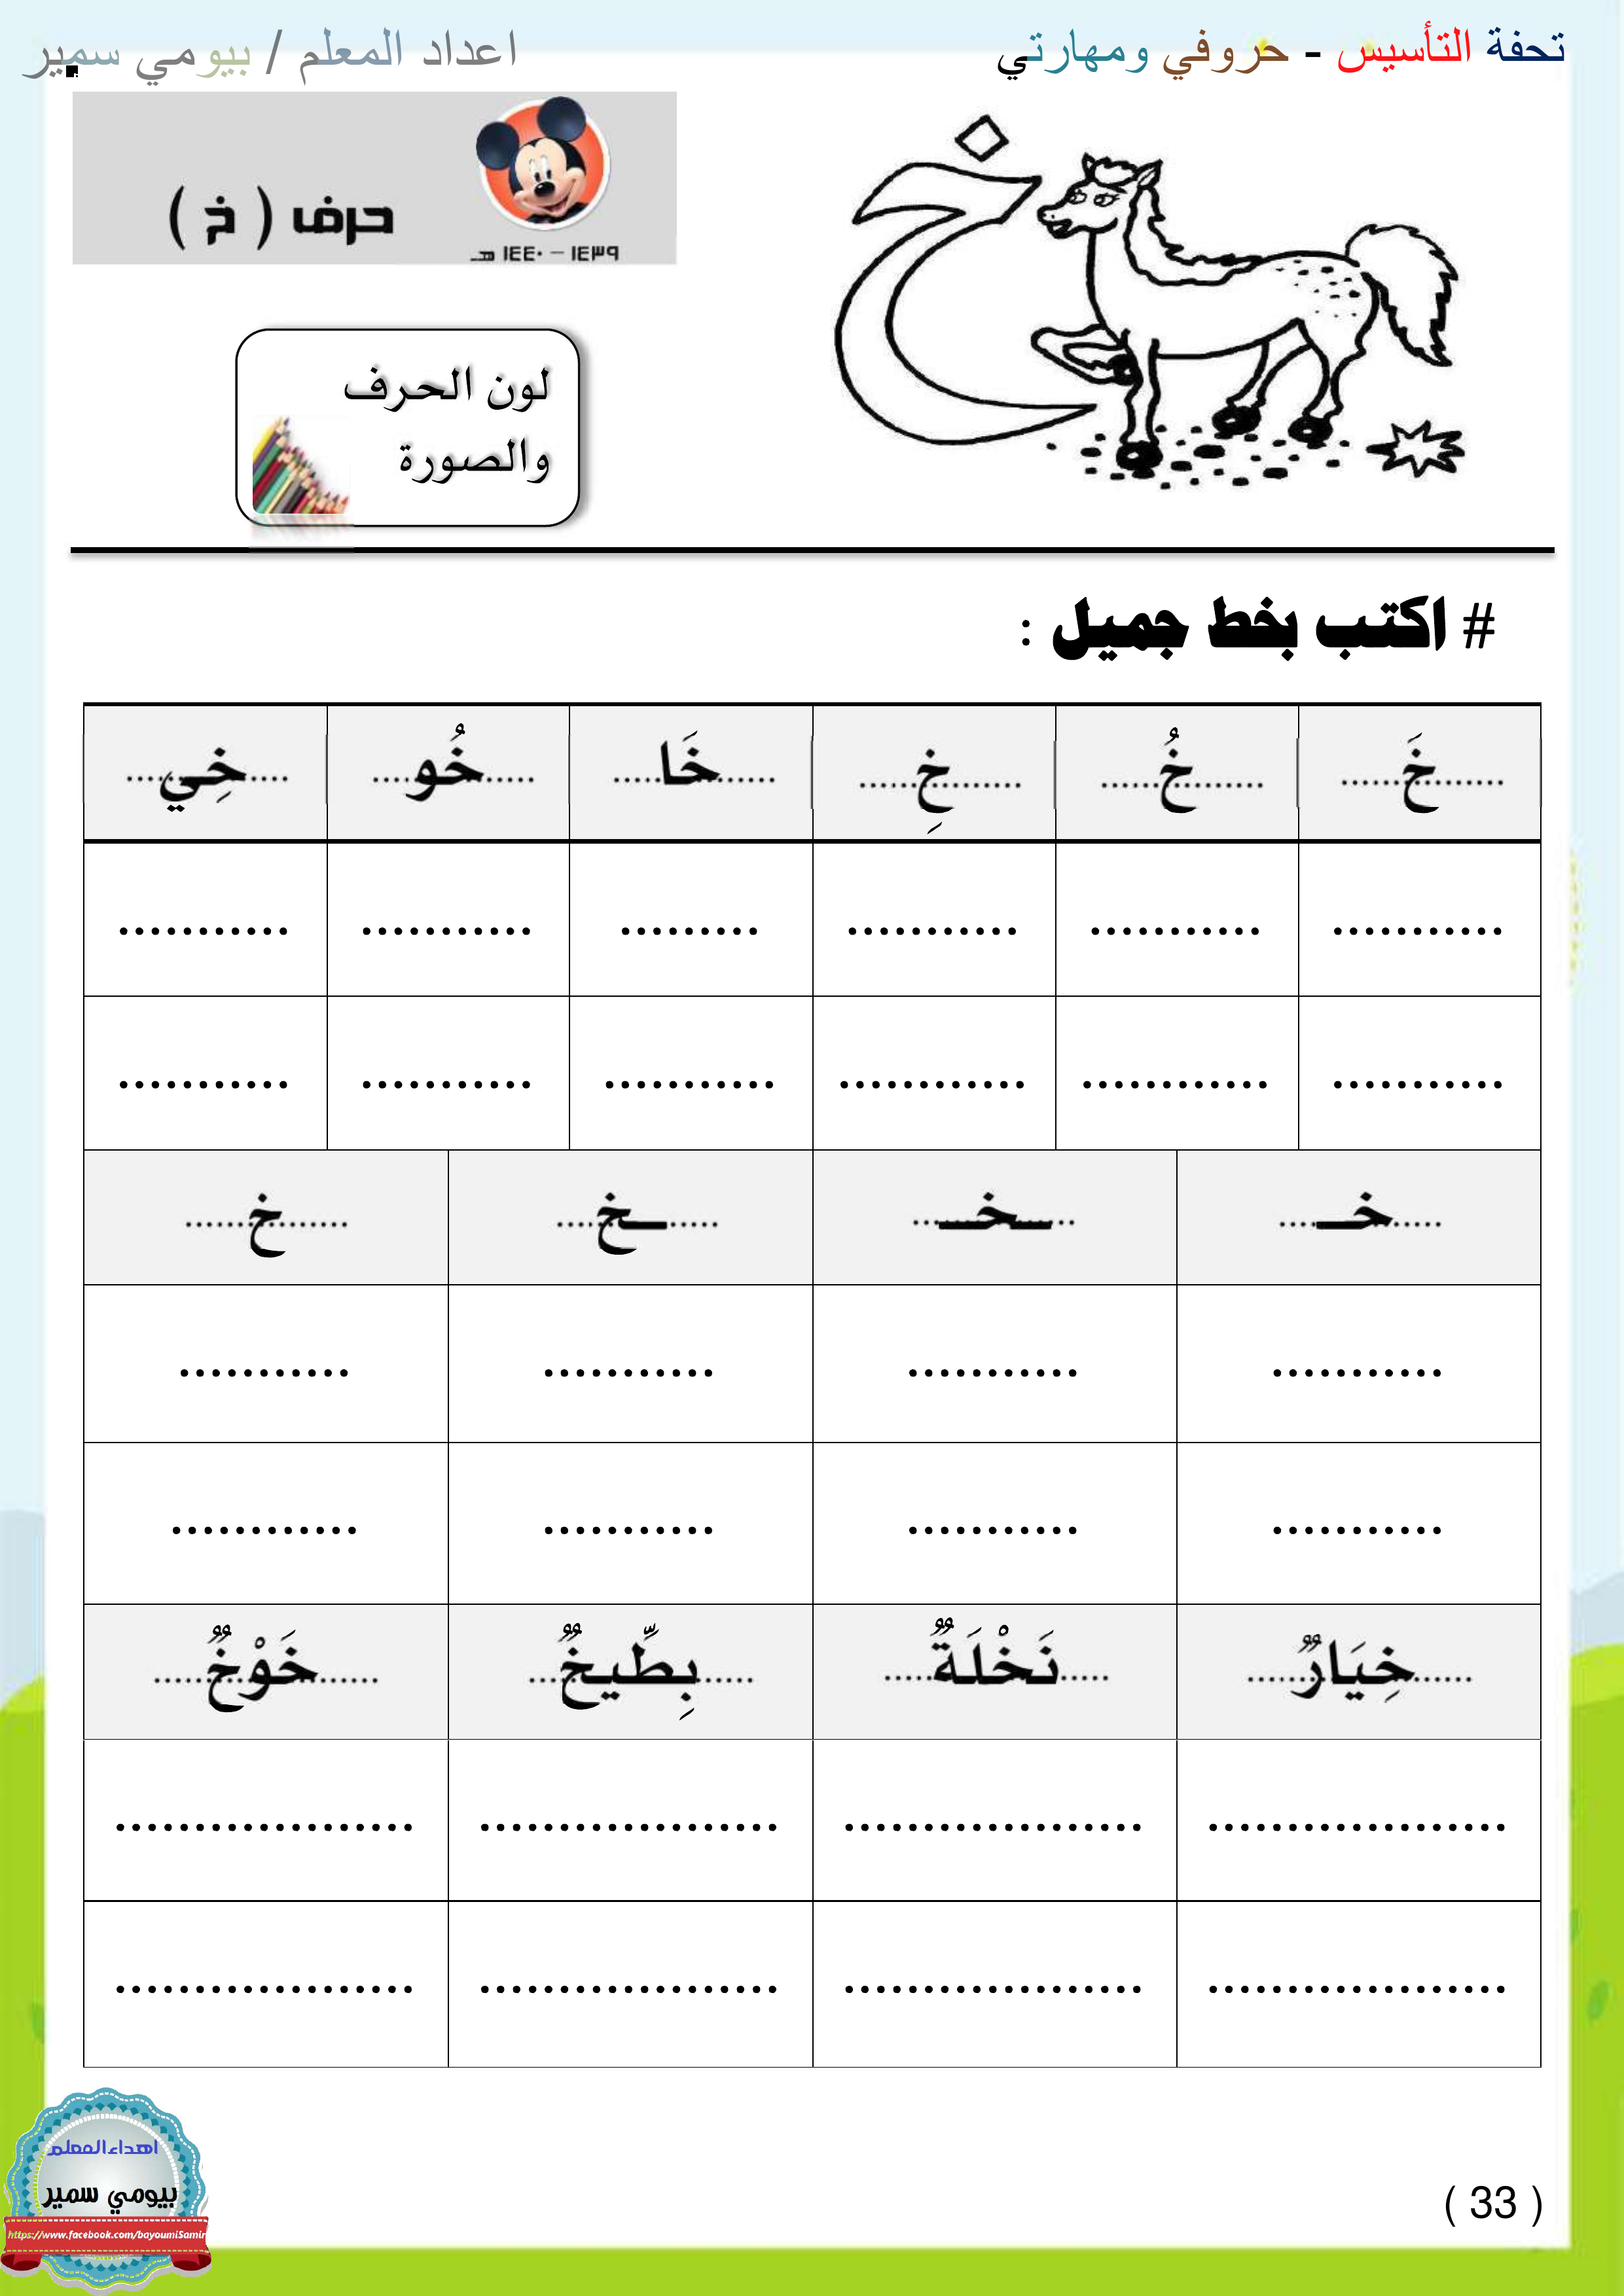 تحفة التأسيس - حروفي ومهارتي
اعداد المعلم / بيومي سمير
حرف ( خ )
١٤٣٩ – ١٤٤٠ هـ
لون الحرف
والصورة
خ
# اكتب بخط جميل :
........خَ...... ........خُ...... ........خِ...... ......خَا..... .....خُو.... ....خِي...
........... ........... ........... ......... ........... ...........
........... ............ ............ ........... ........... ...........
.....خـ.... ..ـخـ... .....ـخ.... .......خ......
........... ........... ........... ...........
........... ........... ........... ............
......خِيَارٌ...... .....نَخْلَةٌ..... ......بِطِّيخٌ... ......خَوْخٌ.....
................... ................... ................... ...................
................... ................... ................... ...................
اهداء المعلم
بيومي سمير
https://www.facebook.com/bayoumiSamir
( 33 )